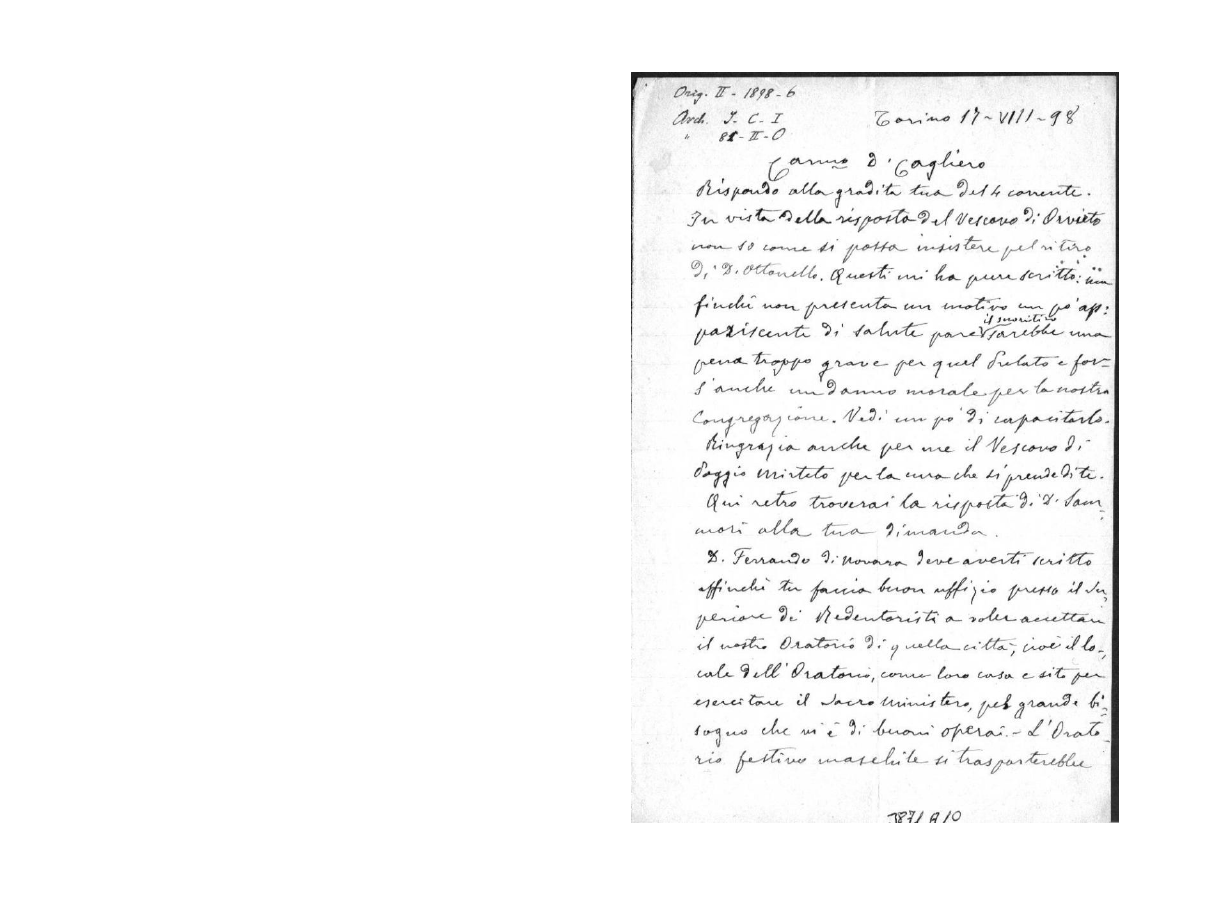 Orig. II - 1898 - 6
Arch. I. C - I
" 81 - II - O
Torino 17-VIII-98
Carmo D. Cagliero
Rispondo alla gradita tua del 4 corrente.
In vista della risposta del Vescovo di Orvieto
non so come si possa insistere pel ritiro
di D. Ottonello. Questi mi ha pure scritto:
finchè non presenta un motivo un po' ap=
pariscente di salute pare il sarebbe una
pena troppo grave per quel Prelato e for=
s'anche un danno morale per la nostra
Congregazione. Vedi un po' di capacitarlo.
Ringrazia anche per me il Vescovo di
Poggio Mirteto per la cura che si prende di te.
Qui retro troverai la risposta di D. Sam=
mori alla tua dimanda.
D. Ferrando di Novara deve averti scritto
affinchè tu faccia buon uffizio presso il Su=
periore di Redentoristi a voler accettare
il nostro Oratorio di quella città, cioè il lo=
cale dell'Oratorio, come loro casa e sito per
esercitare il Sacro Ministero, pel grande bi=
sogno che vi è di buoni operai. - L'Orato=
rio festivo maschile si trasporterebbe
3871 A 10